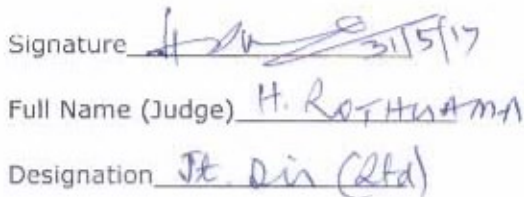 Signature 31/5/17
Full Name (Judge) H. ROTHUAMA
Designation Jt. Dir (Rtd)